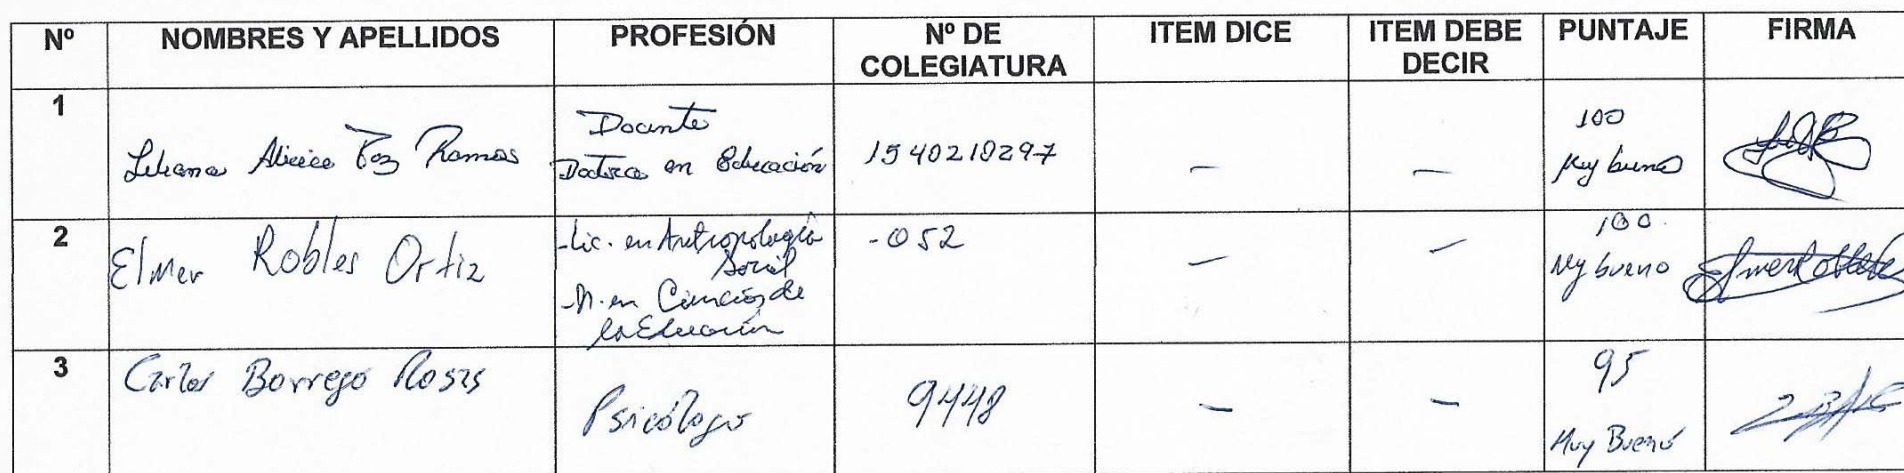 Nº NOMBRES Y APELLIDOS PROFESIÓN Nº DE COLEGIATURA ITEM DICE ITEM DEBE DECIR PUNTAJE FIRMA
1
Ramos
Docente
Doctora en Educación
1540210297
—
—
100
Muy bueno
2
Elmer Robles Ortiz
-Lic. en Antropología
Social
-M. en Ciencias de
la Educación
-052
—
—
100
Muy bueno
3
Carlos Borrego Rosas
Psicólogo
9448
—
—
95
Muy Bueno